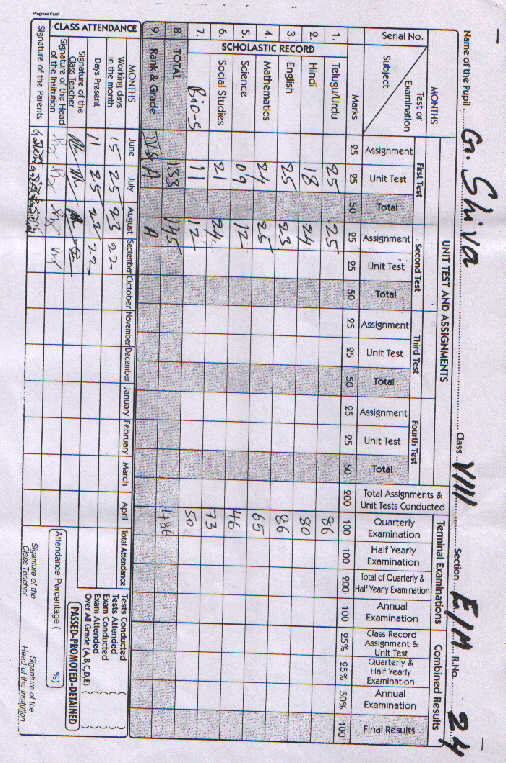 Progress Card
Name of the Pupil G. Shiva Class VIII Section E/M R.No. 24
MONTHS UNIT TEST AND ASSIGNMENTS Terminal Examinations Combined Results
Test or Examination First Test Second Test Third Test Fourth Test Total Assignments & Unit Tests Conducted Quarterly Examination Half Yearly Examination Total of Quarterly & Half Yearly Examination Annual Examination Class Record Assignment & Unit Test Quarterly & Half Yearly Examination Annual Examination Final Results
Serial No. Subject Assignment Unit Test Total Assignment Unit Test Total Assignment Unit Test Total Assignment Unit Test Total
Marks 25 25 50 25 25 50 25 25 50 25 25 50 200 100 100 200 100 25% 25% 50% 100
SCHOLASTIC RECORD
1. Telugu/Urdu 25 25 86
2. Hindi 18 24 80
3. English 25 23 86
4. Mathematics 24 25 65
5. Science 09 12 46
6. Social Studies 21 24 73
7. Bio-S 11 12 50
8. TOTAL 133 145 486
9. Rank & Grade A A
CLASS ATTENDANCE
MONTHS June July August September October November December January February March April Total Attendance
Working days in the month 15 25 23 22
Days Present 11 25 22 22
Signature of the Class Teacher
Signature of the Head of the Institution
Signature of the Parents
Tests Conducted
Tests Attended
Exam Conducted
Exam Attended
Over All Grade (A,B,C,D,E)
PASSED-PROMOTED-DETAINED
Attendance Percentage ( %)
Signature of the Class Teacher
Signature of the Head of the Institution